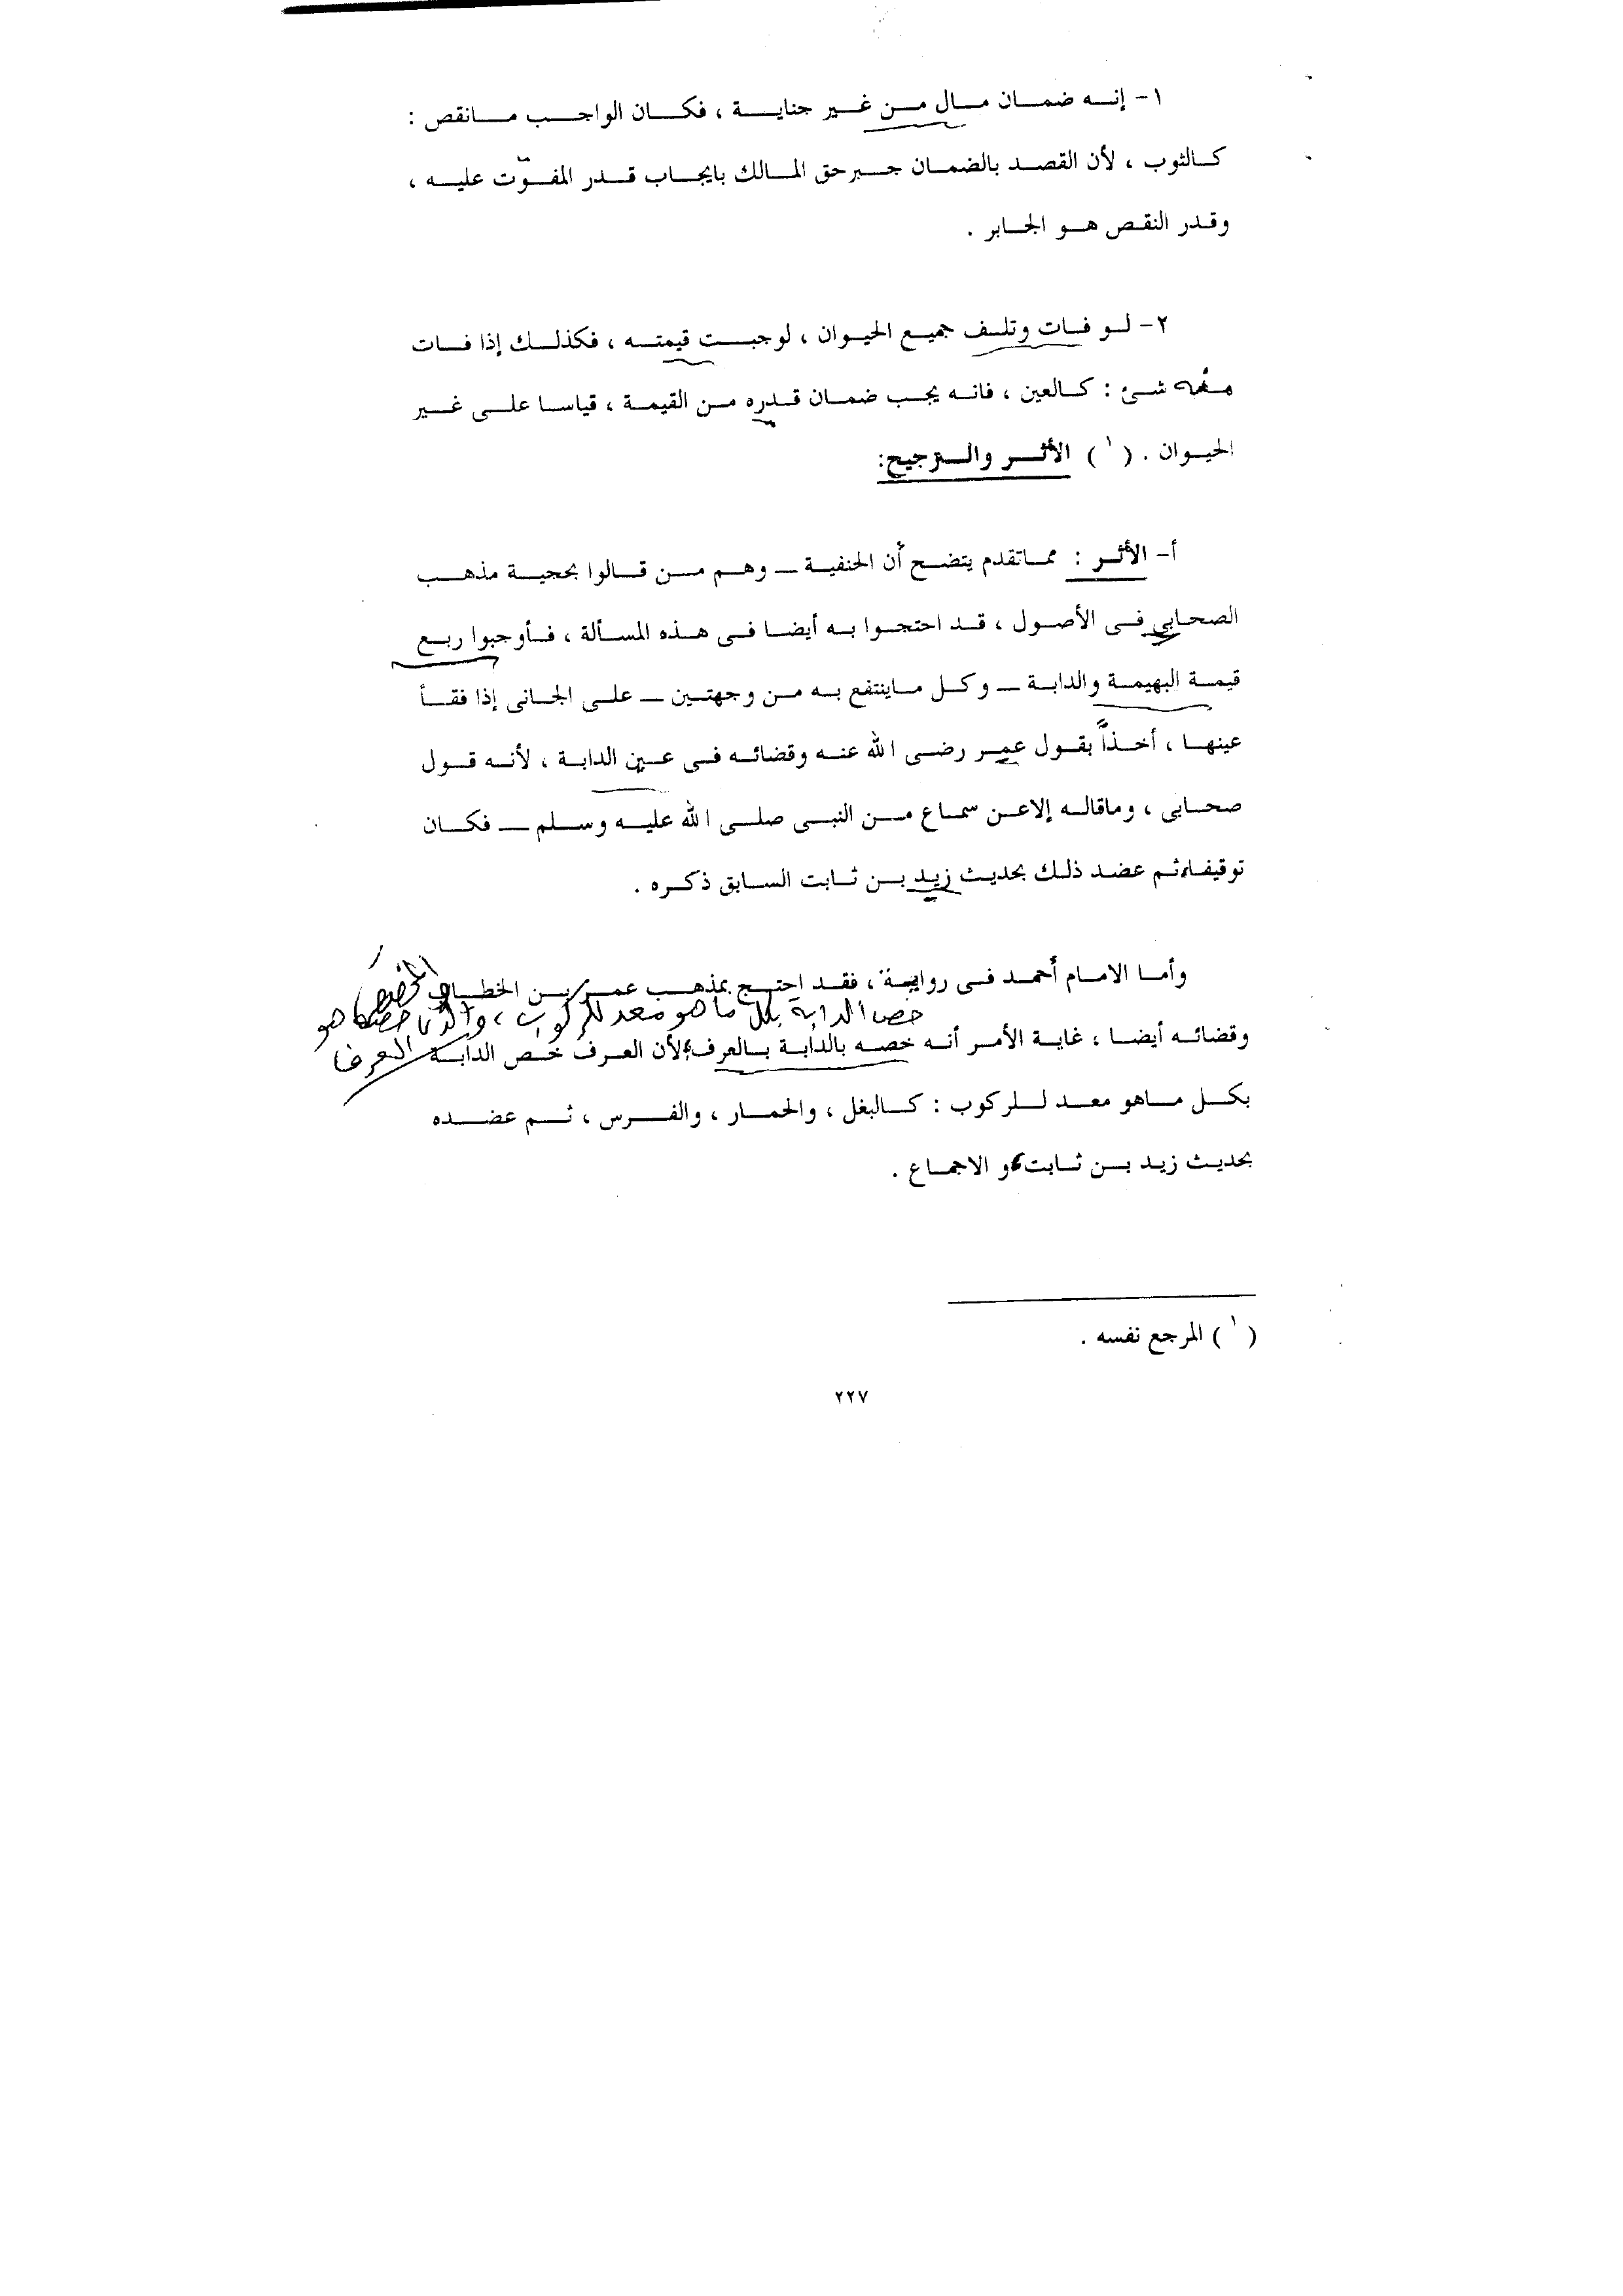 ١- إنه ضمان مال من غير جناية ، فكان الواجب مانقص :
كالثوب ، لأن القصد بالضمان جبرحق المالك بايجاب قدر المفوّت عليه ،
وقدر النقص هو الجابر .
٢- لو فات وتلف جميع الحيوان ، لوجبت قيمته ، فكذلك إذا فات
منه شئ : كالعين ، فانه يجب ضمان قدره من القيمة ، قياسا على غير
الحيوان . (١) الأثر والترجيح:
أ- الأثر : مماتقدم يتضح أن الحنفية ــ وهم من قالوا بحجية مذهب
الصحابي فى الأصول ، قد احتجوا به أيضا فى هذه المسألة ، فأوجبوا ربع
قيمة البهيمة والدابة ــ وكل ماينتفع به من وجهتين ــ على الجانى إذا فقأ
عينها ، أخذاً بقول عمر رضى الله عنه وقضائه فى عين الدابة ، لأنه قول
صحابى ، وماقاله إلاعن سماع من النبى صلى الله عليه وسلم ــ فكان
توقيفا، ثم عضد ذلك بحديث زيد بن ثابت السابق ذكره .
وأما الامام أحمد فى رواية ، فقد احتج بمذهب عمر بن الخطاب
خص الدابة بكل ما هو معد للركوب ،
هو
العرف
وقضائه أيضا ، غاية الأمر أنه خصه بالدابة بالعرف، لأن العرف خص الدابة
بكل ماهو معد للركوب : كالبغل ، والحمار ، والفرس ، ثم عضده
بحديث زيد بن ثابت، و الاجماع .
(١) المرجع نفسه .
٢٢٧